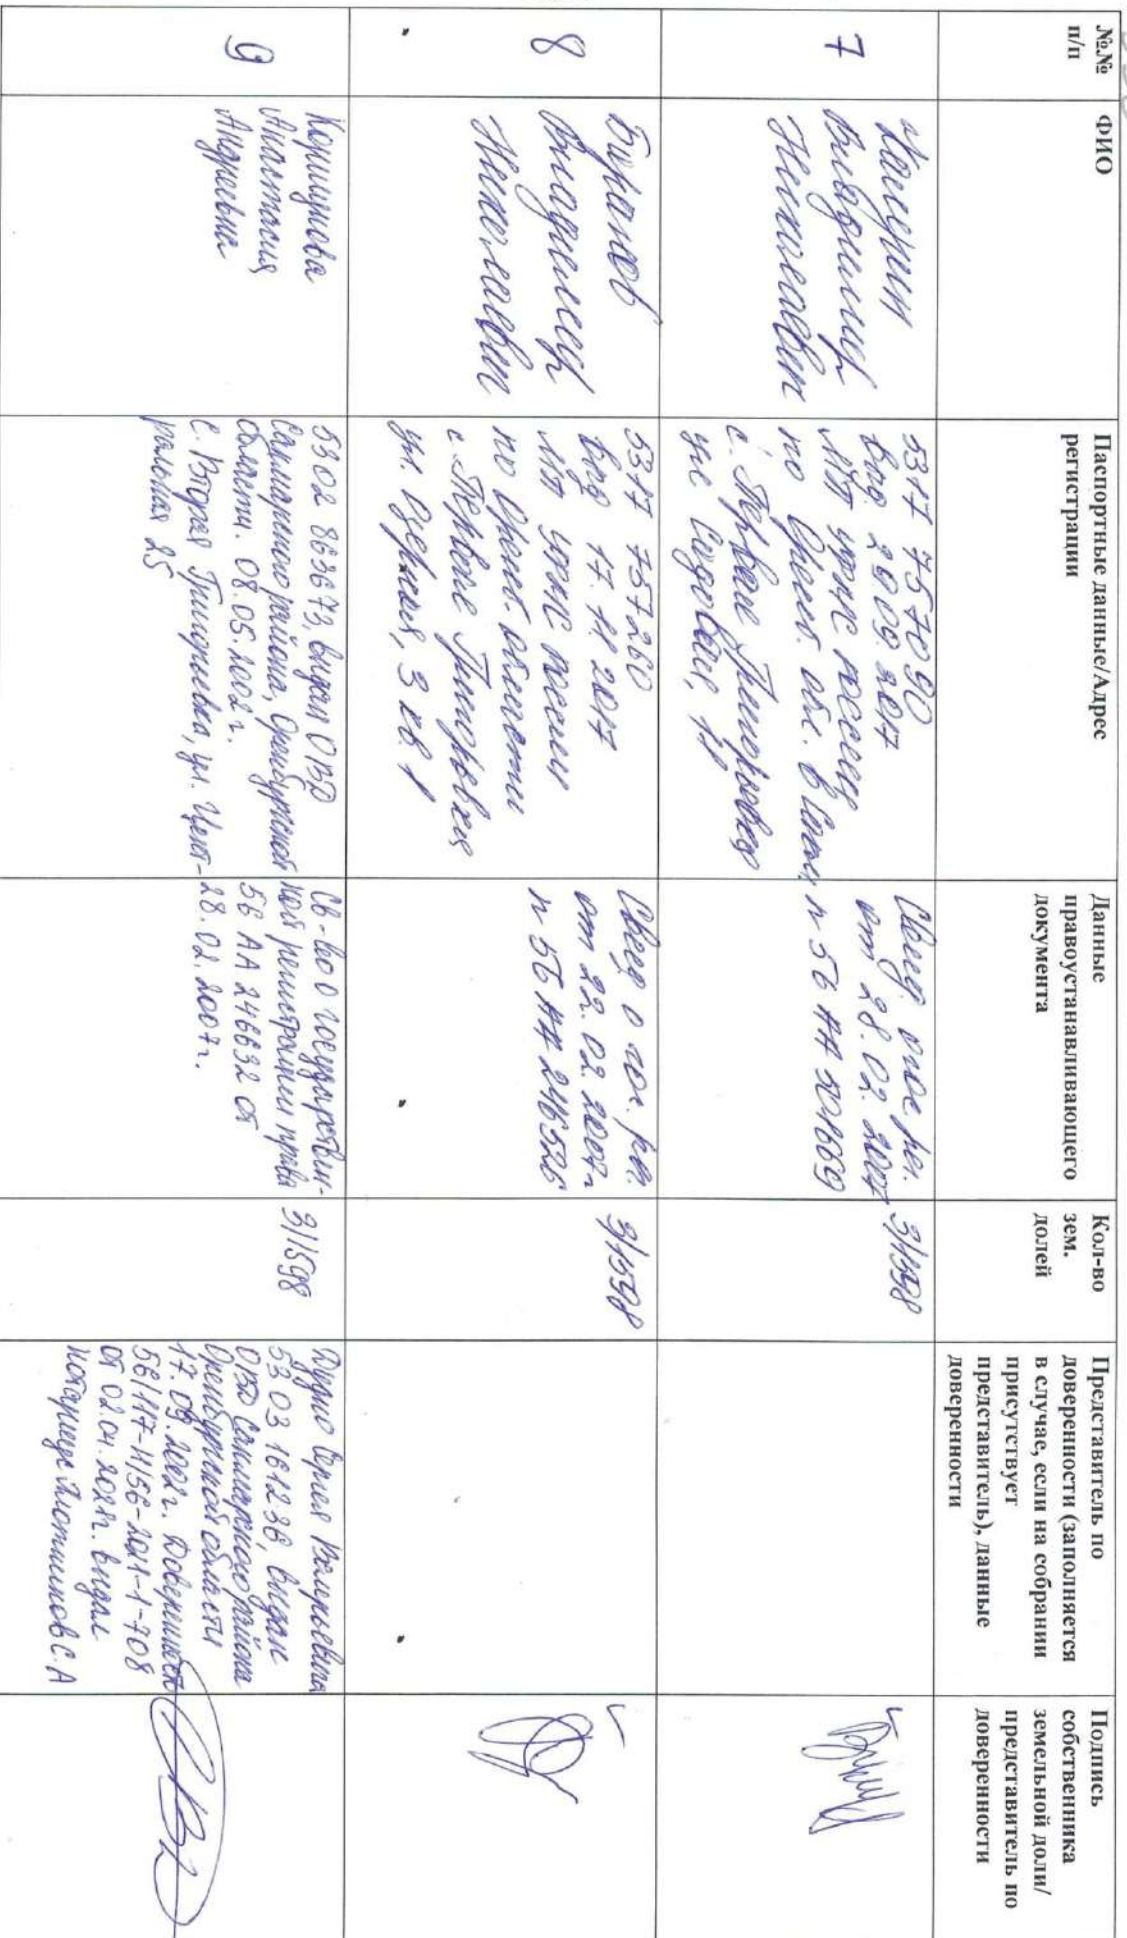 №№ п/п
ФИО
Паспортные данные/Адрес
регистрации
Данные
правоустанавливающего
документа
Кол-во
зем.
долей
Представитель по
доверенности (заполняется
в случае, если на собрании
присутствует
представитель), данные
доверенности
Подпись
собственника
земельной доли/
представитель по
доверенности
7
Владимир
Николаевич
5317 757090
выд. 20.09.2017
МП УФМС России
по Оренб. обл. в
с. Первая Григорьевка
ул. Садовая, 11
Свид. о гос. рег.
от 28.02.2007
№ 56 АА 501669
3/1598
8
Буранов
Владимир
Николаевич
5317 757260
выд 17.11.2017
МП УФМС России
по Оренб. области
с. Первая Григорьевка
ул. Озерная, 3 кв. 1
Свид о гос. рег.
от 22.02.2007г
№ 56 АА 246526
3/1598
9
Коршунова
Анастасия
Андреевна
5302 863673, выдан ОВД
Сакмарского района, Оренбургской
области. 08.05.2002 г.
с. Вторая Григорьевка, ул. Цент-
ральная 25
Св-во о государствен-
ной регистрации права
56 АА 246632 от
28.02.2007г.
3/1598
Валерьевна
5303 161236, выдан
ОВД Сакмарского района
Оренбургской области
17.09.2002г. Доверенность
56/117-н/56-2021-1-708
от 02.04.2021г. выдал
нотариус Плотников С. А